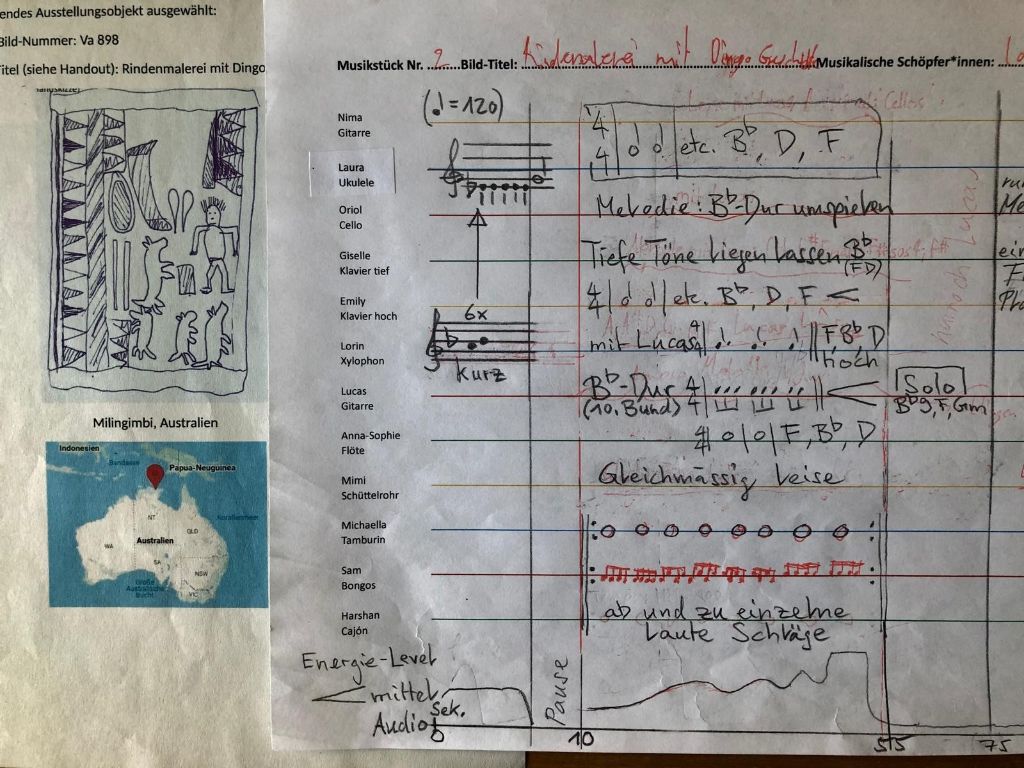 endes Ausstellungsobjekt ausgewählt:
Bild-Nummer: Va 898
Titel (siehe Handout): Rindenmalerei mit Dingo
Milingimbi, Australien
Indonesien
Bandasee
Papua-Neuguinea
Korallenmeer
NT
QLD
WA
Australien
SA
NSW
Große
Australische
Bucht
VIC
Musikstück Nr. 2 Bild-Titel: Rindenmalerei mit Dingo Musikalische Schöpfer*innen:
Nima
Gitarre
(♩=120)
4/4 etc. B♭, D, F
Laura
Ukulele
Oriol
Cello
Melodie: B♭-Dur umspielen
Giselle
Klavier tief
Tiefe Töne liegen lassen B♭
(F D)
Emily
Klavier hoch
6x
4/4 etc. B♭, D, F <
Lorin
Xylophon
kurz
mit Lucas 4/4 F B♭ D
hoch
Lucas
Gitarre
B♭-Dur 4/4
(10. Bund)
Solo
B♭9, F, Gm
Anna-Sophie
Flöte
4/4 o o F, B♭, D
Mimi
Schüttelrohr
Gleichmässig leise
Michaella
Tamburin
Sam
Bongos
Harshan
Cajón
ab und zu einzelne
laute Schläge
Energie-Level
mittel
Sek.
Audio
Pause
0
10
55
75